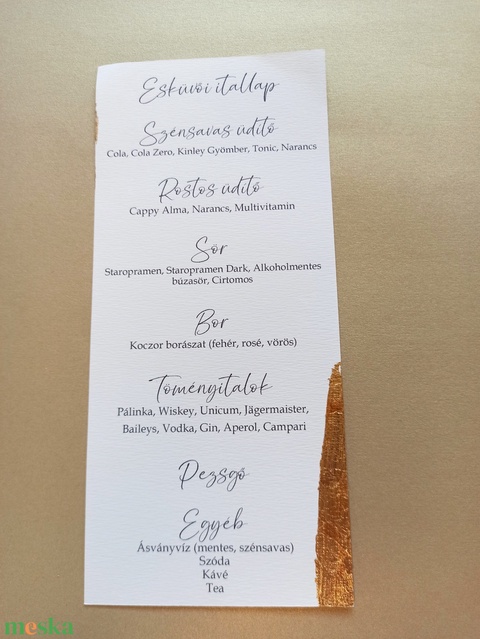 Esküvői itallap
Szénsavas üdítő
Cola, Cola Zero, Kinley Gyömber, Tonic, Narancs
Rostos üdítő
Cappy Alma, Narancs, Multivitamin
Sör
Staropramen, Staropramen Dark, Alkoholmentes
búzasör, Cirtomos
Bor
Koczor borászat (fehér, rosé, vörös)
Töményitalok
Pálinka, Wiskey, Unicum, Jägermaister,
Baileys, Vodka, Gin, Aperol, Campari
Pezsgő
Egyéb
Ásványvíz (mentes, szénsavas)
Szóda
Kávé
Tea
meska